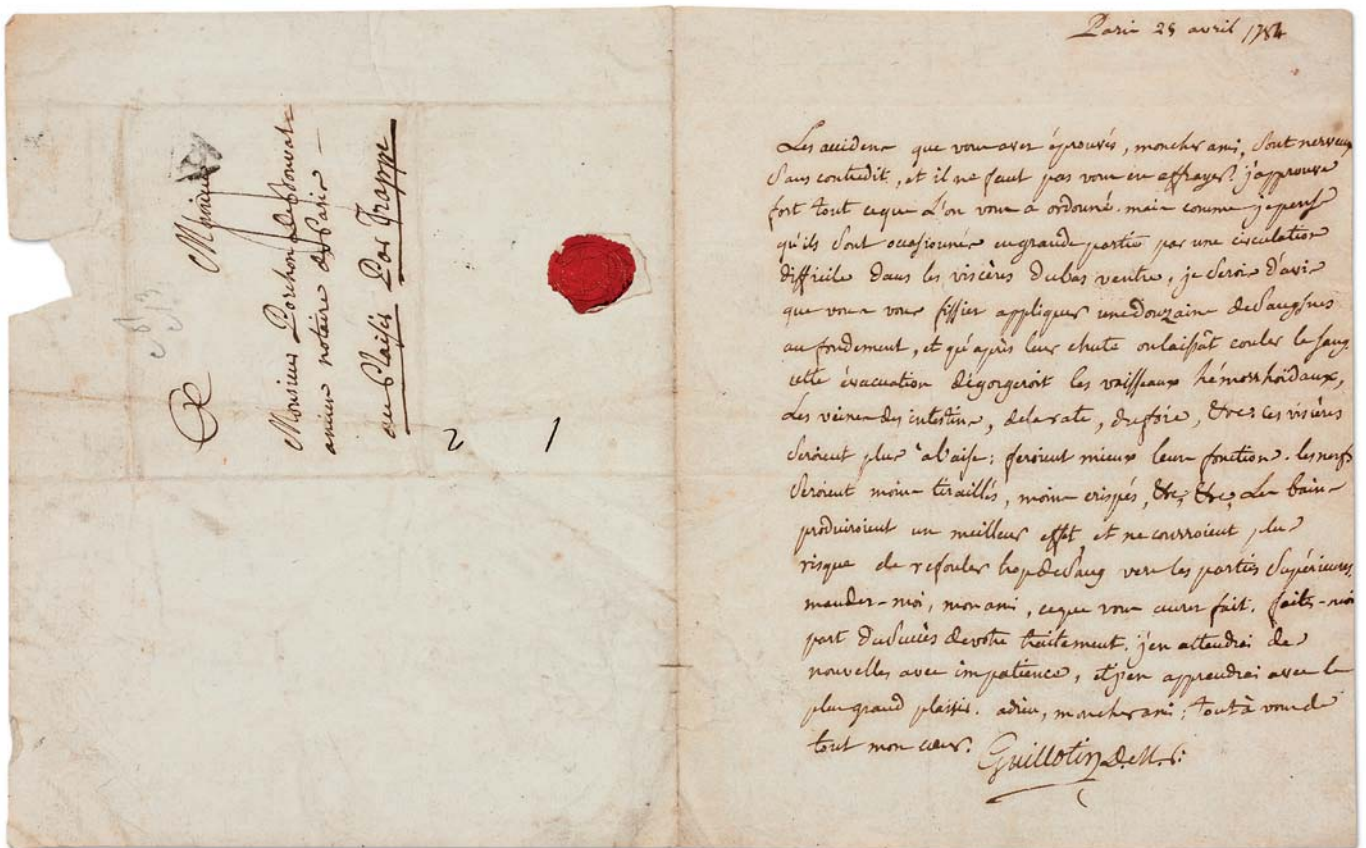 A Monsieur
Monsieur Porchon de Bonval
ancien notaire de Paris
au Plaisir Par Trappe
2 1
Paris 28 avril 1784
Les accidens que vous avez éprouvés, mon cher ami, sont nerveux
sans contredit, et il ne faut pas vous en effrayer. j'approuve
fort tout ce que l'on vous a ordonné. mais comme je pense
qu'ils sont occasionnés en grande partie par une circulation
difficile dans les viscères du bas ventre, je serois d'avis
que vous vous fissiez appliquer une douzaine de sangsues
au fondement, et qu'après leur chute on laissât couler le sang.
cette évacuation dégorgeroit les vaisseaux hémorrhoïdaux,
les veines des intestins, de la rate, du foie, &c ces viscères
seroient plus à l'aise; feroient mieux leurs fonctions. les nerfs
seroient moins tiraillés, moins crispés, &c, &c, Les bains
produiroient un meilleur effet, et ne courroient plus
risque de refouler trop de sang vers les parties supérieures.
mandez-moi, mon ami, ce que vous aurez fait. faites-moi
part du succès de votre traitement. j'en attendrai des
nouvelles avec impatience, et j'en apprendrai avec le
plus grand plaisir. adieu, mon cher ami; tout à vous de
tout mon cœur. Guillotin D.M.P.